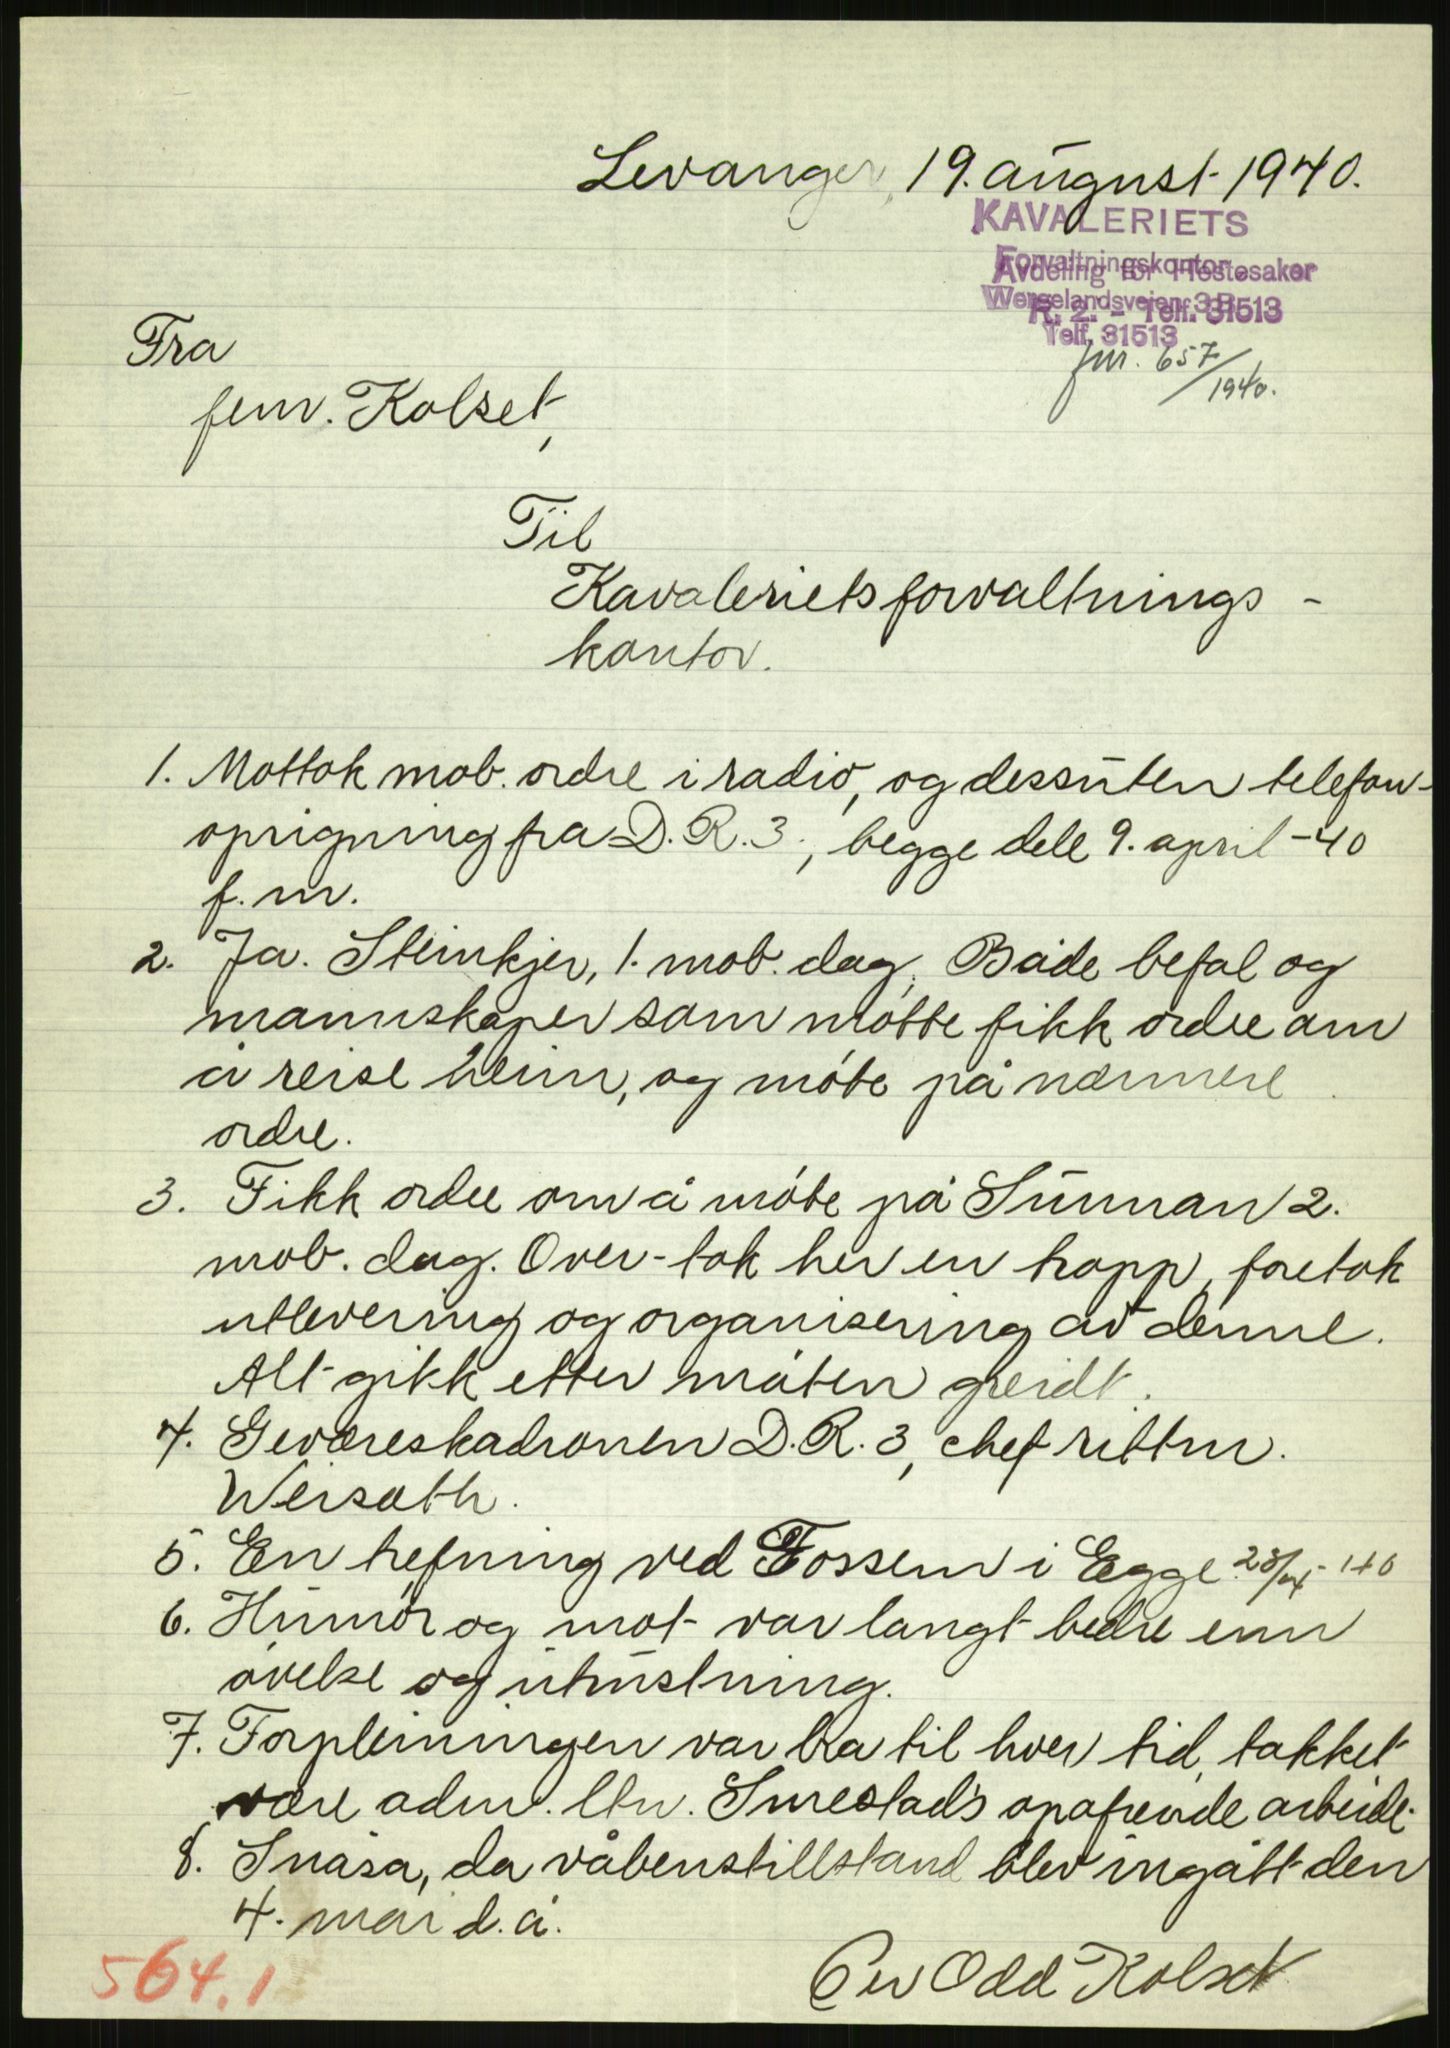 Levanger, 19. august 1940.
KAVALERIETS
Forvaltningskontor
Avdeling for Hestesaker
Wergelandsveien 3B
R. 2. - Telf. 31513
Telf. 31513
jnr. 657/1940.
Fra
fenr. Kolset,
Til
Kavaleriets forvaltnings-
kontor.
1. Mottok mob. ordre i radio, og dessuten telefon-
oprigning fra D.R.3., begge dele 9. april -40
f.m.
2. Ja. Steinkjer, 1. mob. dag. Både befal og
mannskaper som møtte fikk ordre om
å reise heim, og møte på nærmere
ordre.
3. Fikk ordre om å møte på Sunnan 2.
mob. dag. Over-tok her en tropp, foretok
utlevering og organisering av denne.
Alt gikk etter måten greidt.
4. Geværeskadronen D.R.3, chef rittm.
Weisæth.
5. En trefning ved Fossem i Egge 23/4-40
6. Humør og mot var langt bedre enn
øvelse og utrustning.
7. Forpleiningen var bra til hver tid, takket
være adm. ltn. Smestad's opofrende arbeide.
8. Snåsa, da våbenstillstand blev ingått den
4. mai d.å.
Per Odd Kolset
564.1